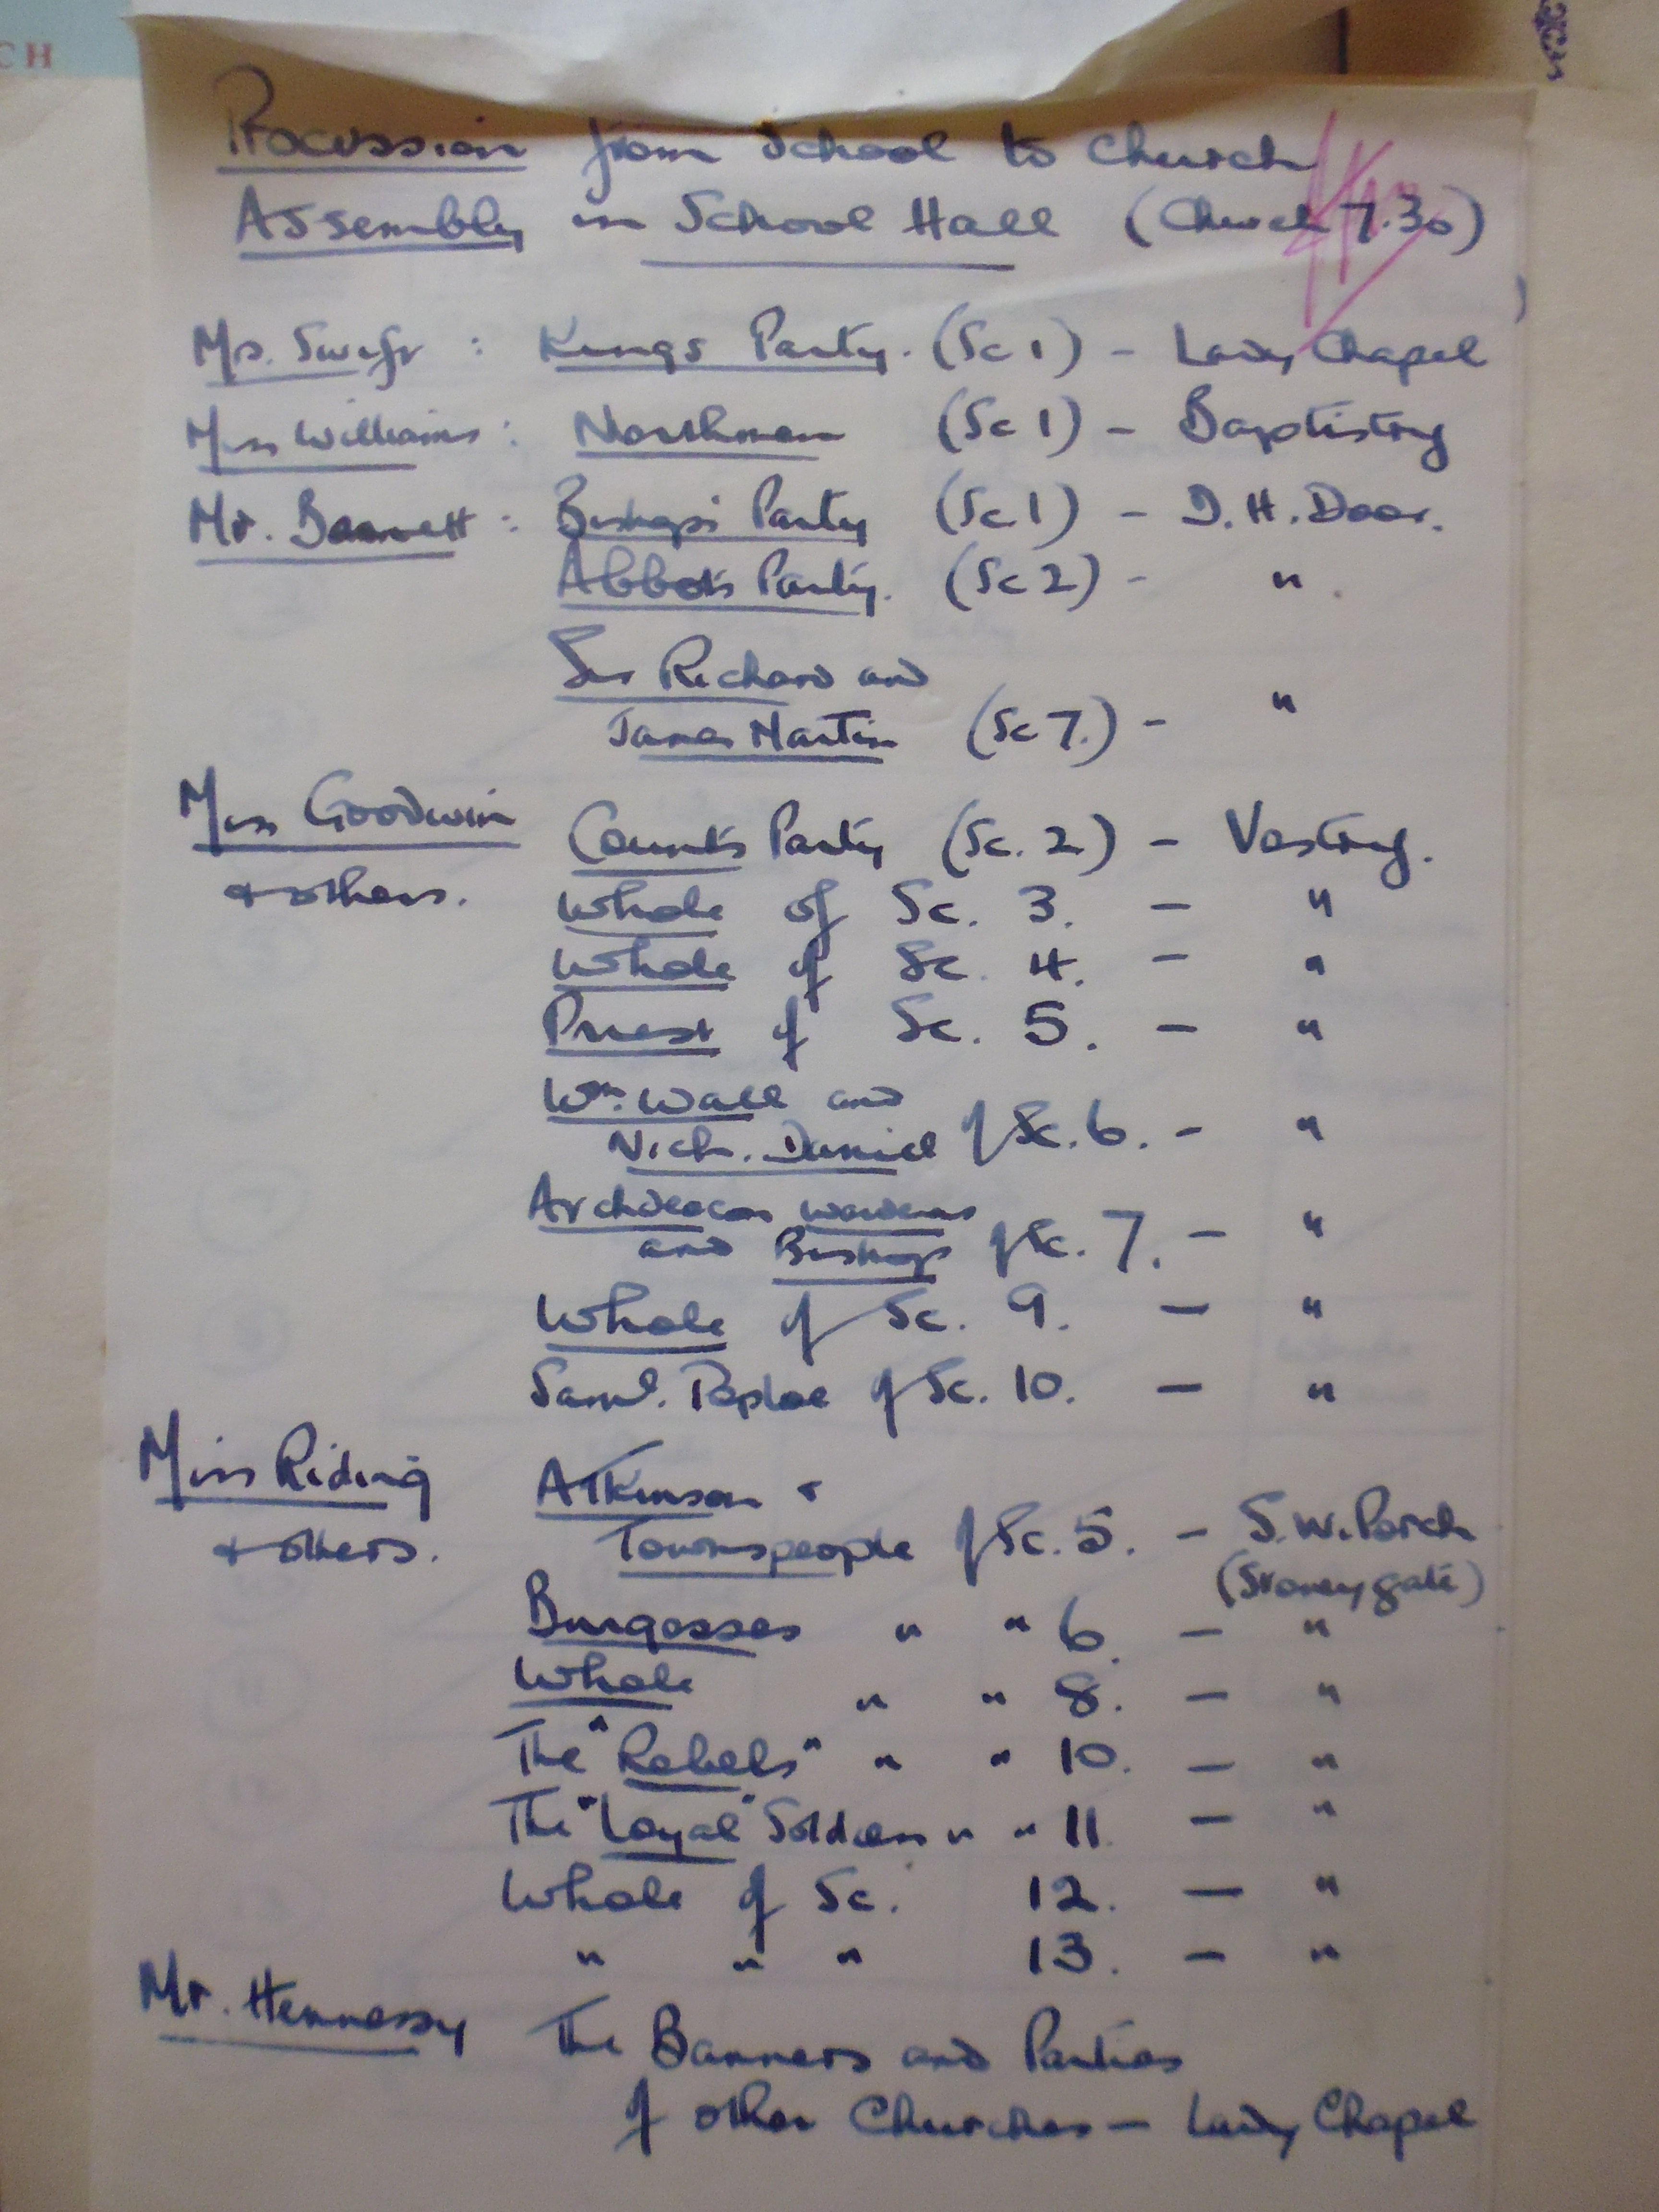 CH
Procession from School to Church
Assembly in School Hall (Church 7.30)
Mr. Swift : Kings Party. (Sc 1) - Lady Chapel
Miss Williams : Northmen (Sc 1) - Baptistry
Mr. Barnett : Bishop's Party (Sc 1) - D. H. Door.
Abbots Party. (Sc 2) - "
Sir Richard and
James Martin (Sc 7.) - "
Miss Goodwin Counts Party (Sc. 2) - Vestry.
+ others. Whole of Sc. 3. - "
Whole of Sc. 4. - "
Priest of Sc. 5. - "
Wm. Wall and
Nich. Daniel of Sc. 6. - "
Archdeacon wardens
and Bishop of Sc. 7. - "
Whole of Sc. 9. - "
Saml. Peploe of Sc. 10. - "
Miss Riding Atkinson +
+ others. Townspeople of Sc. 5. - S.W. Porch
(Stoneygate)
Burgesses " " 6. - "
Whole " " 8. - "
The "Rebels" " " 10. - "
The "Loyal" Soldiers " " 11. - "
Whole of Sc. 12. - "
" " " 13. - "
Mr. Hennessy The Banners and Parties
of other Churches - Lady Chapel